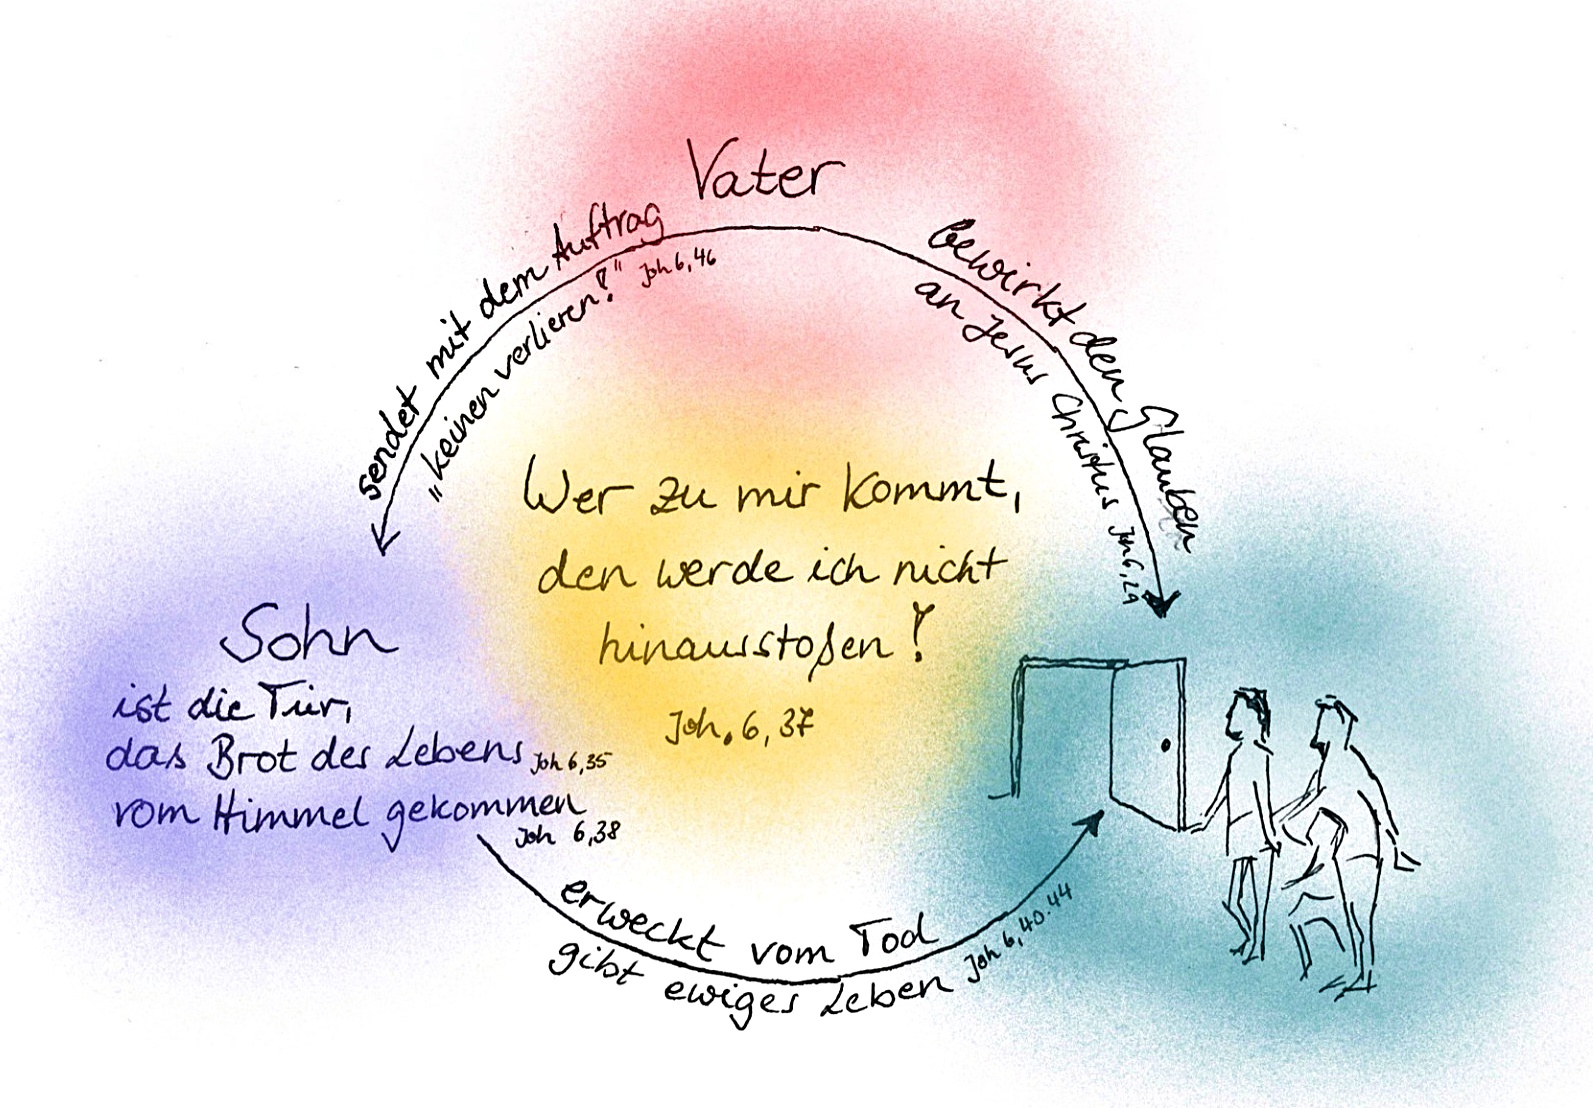 Vater
sendet mit dem Auftrag
„keinen verlieren!“ Joh 6,46
bewirkt den Glauben
an Jesus Christus Joh 6,29
Wer zu mir kommt,
den werde ich nicht
hinausstoßen!
Joh. 6, 37
Sohn
ist die Tür,
das Brot des Lebens Joh 6,35
vom Himmel gekommen
Joh 6,38
erweckt vom Tod
gibt ewiges Leben Joh 6,40.44